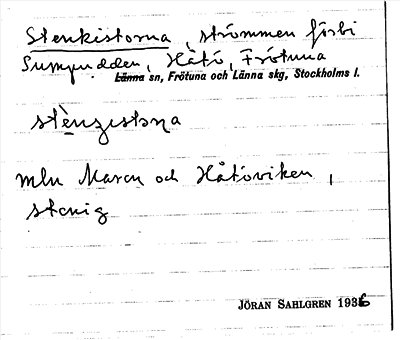 Stenkistorna, strömmen förbi
Sumpudden, Håtö, Frötuna
Länna sn, Frötuna och Länna skg, Stockholms l.
stènʒistɔṇa
mln Maren och Håtöviken,
stenig
JÖRAN SAHLGREN 1936